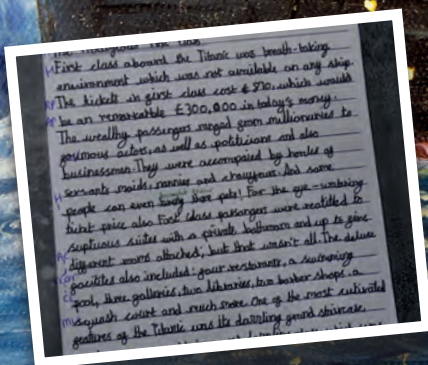 First class aboard the Titanic was breath-taking
environment which was not available on any ship.
The tickets in first class cost £ 870, which would
be an remarkable £300,000 in today's money.
The wealthy passengers ranged from millionaries to
famous actors, as well as politicians and also
businessmen. They were accompanied by hordes of
servants maids, nannies and chauffeurs. And some
people can even bring there pets! For the eye-watering
ticket price also First class passangers were
suptuous suites with a private bathroom and up to five
different rooms attached; but that wasn't all. The deluxe
facilities also included: four restaurants, a swimming
pool, three galleries, two libraries, two barber shops, a
squash court and much more. One of the most
features of the Titanic was its dazzling grand staircase